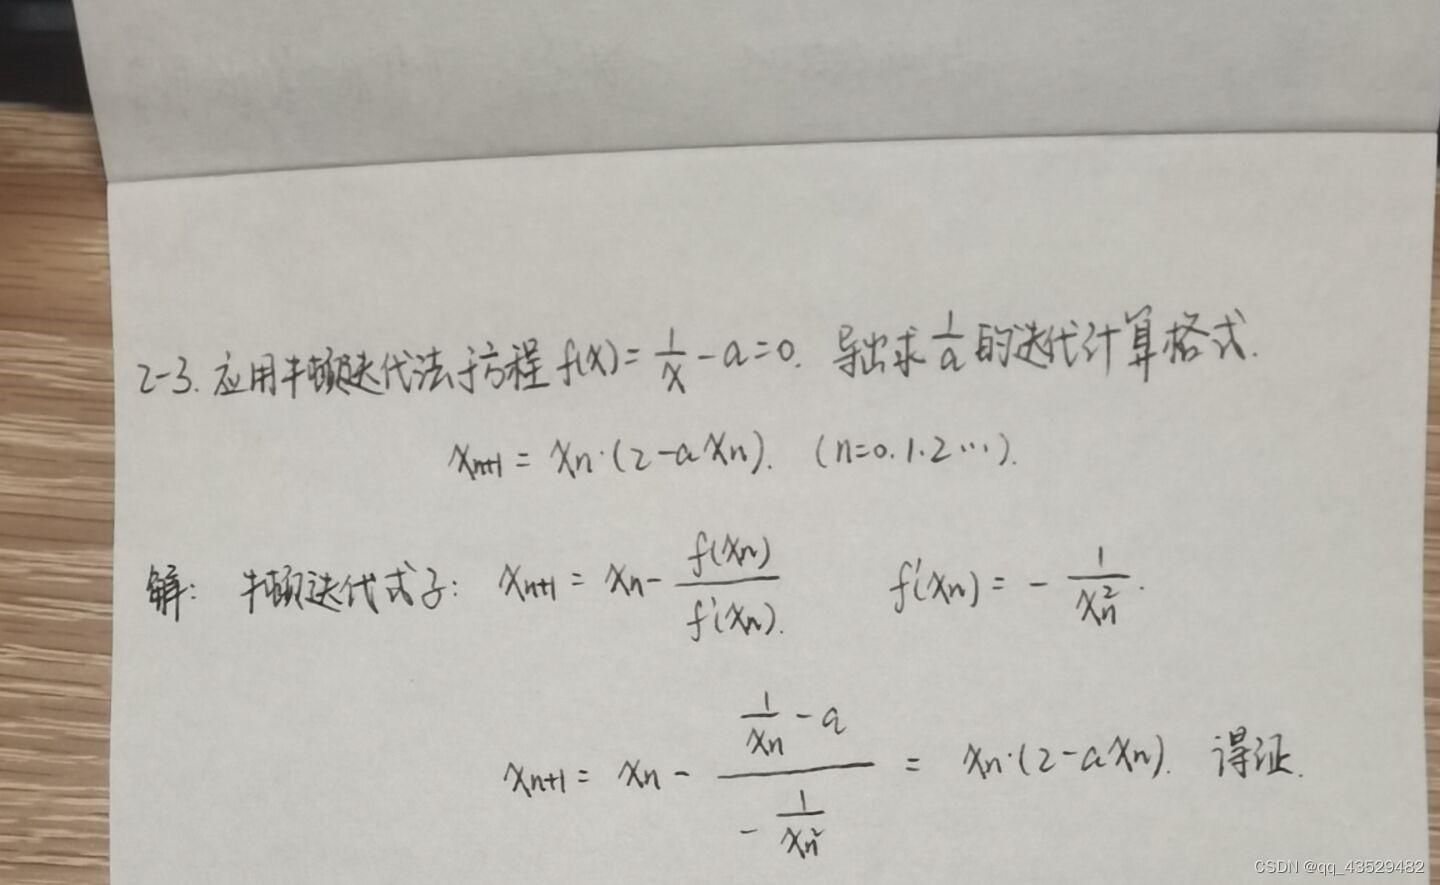 2-3. 应用牛顿迭代法于方程 f(x) = 1/x - a = 0. 导出求 1/a 的迭代计算格式.
xn+1 = xn·(2-axn). (n=0.1.2…).
解: 牛顿迭代式子: xn+1 = xn - f(xn)/f'(xn). f'(xn) = - 1/xn².
xn+1 = xn - (1/xn - a)/(- 1/xn²) = xn·(2-axn). 得证.
CSDN @qq_43529482